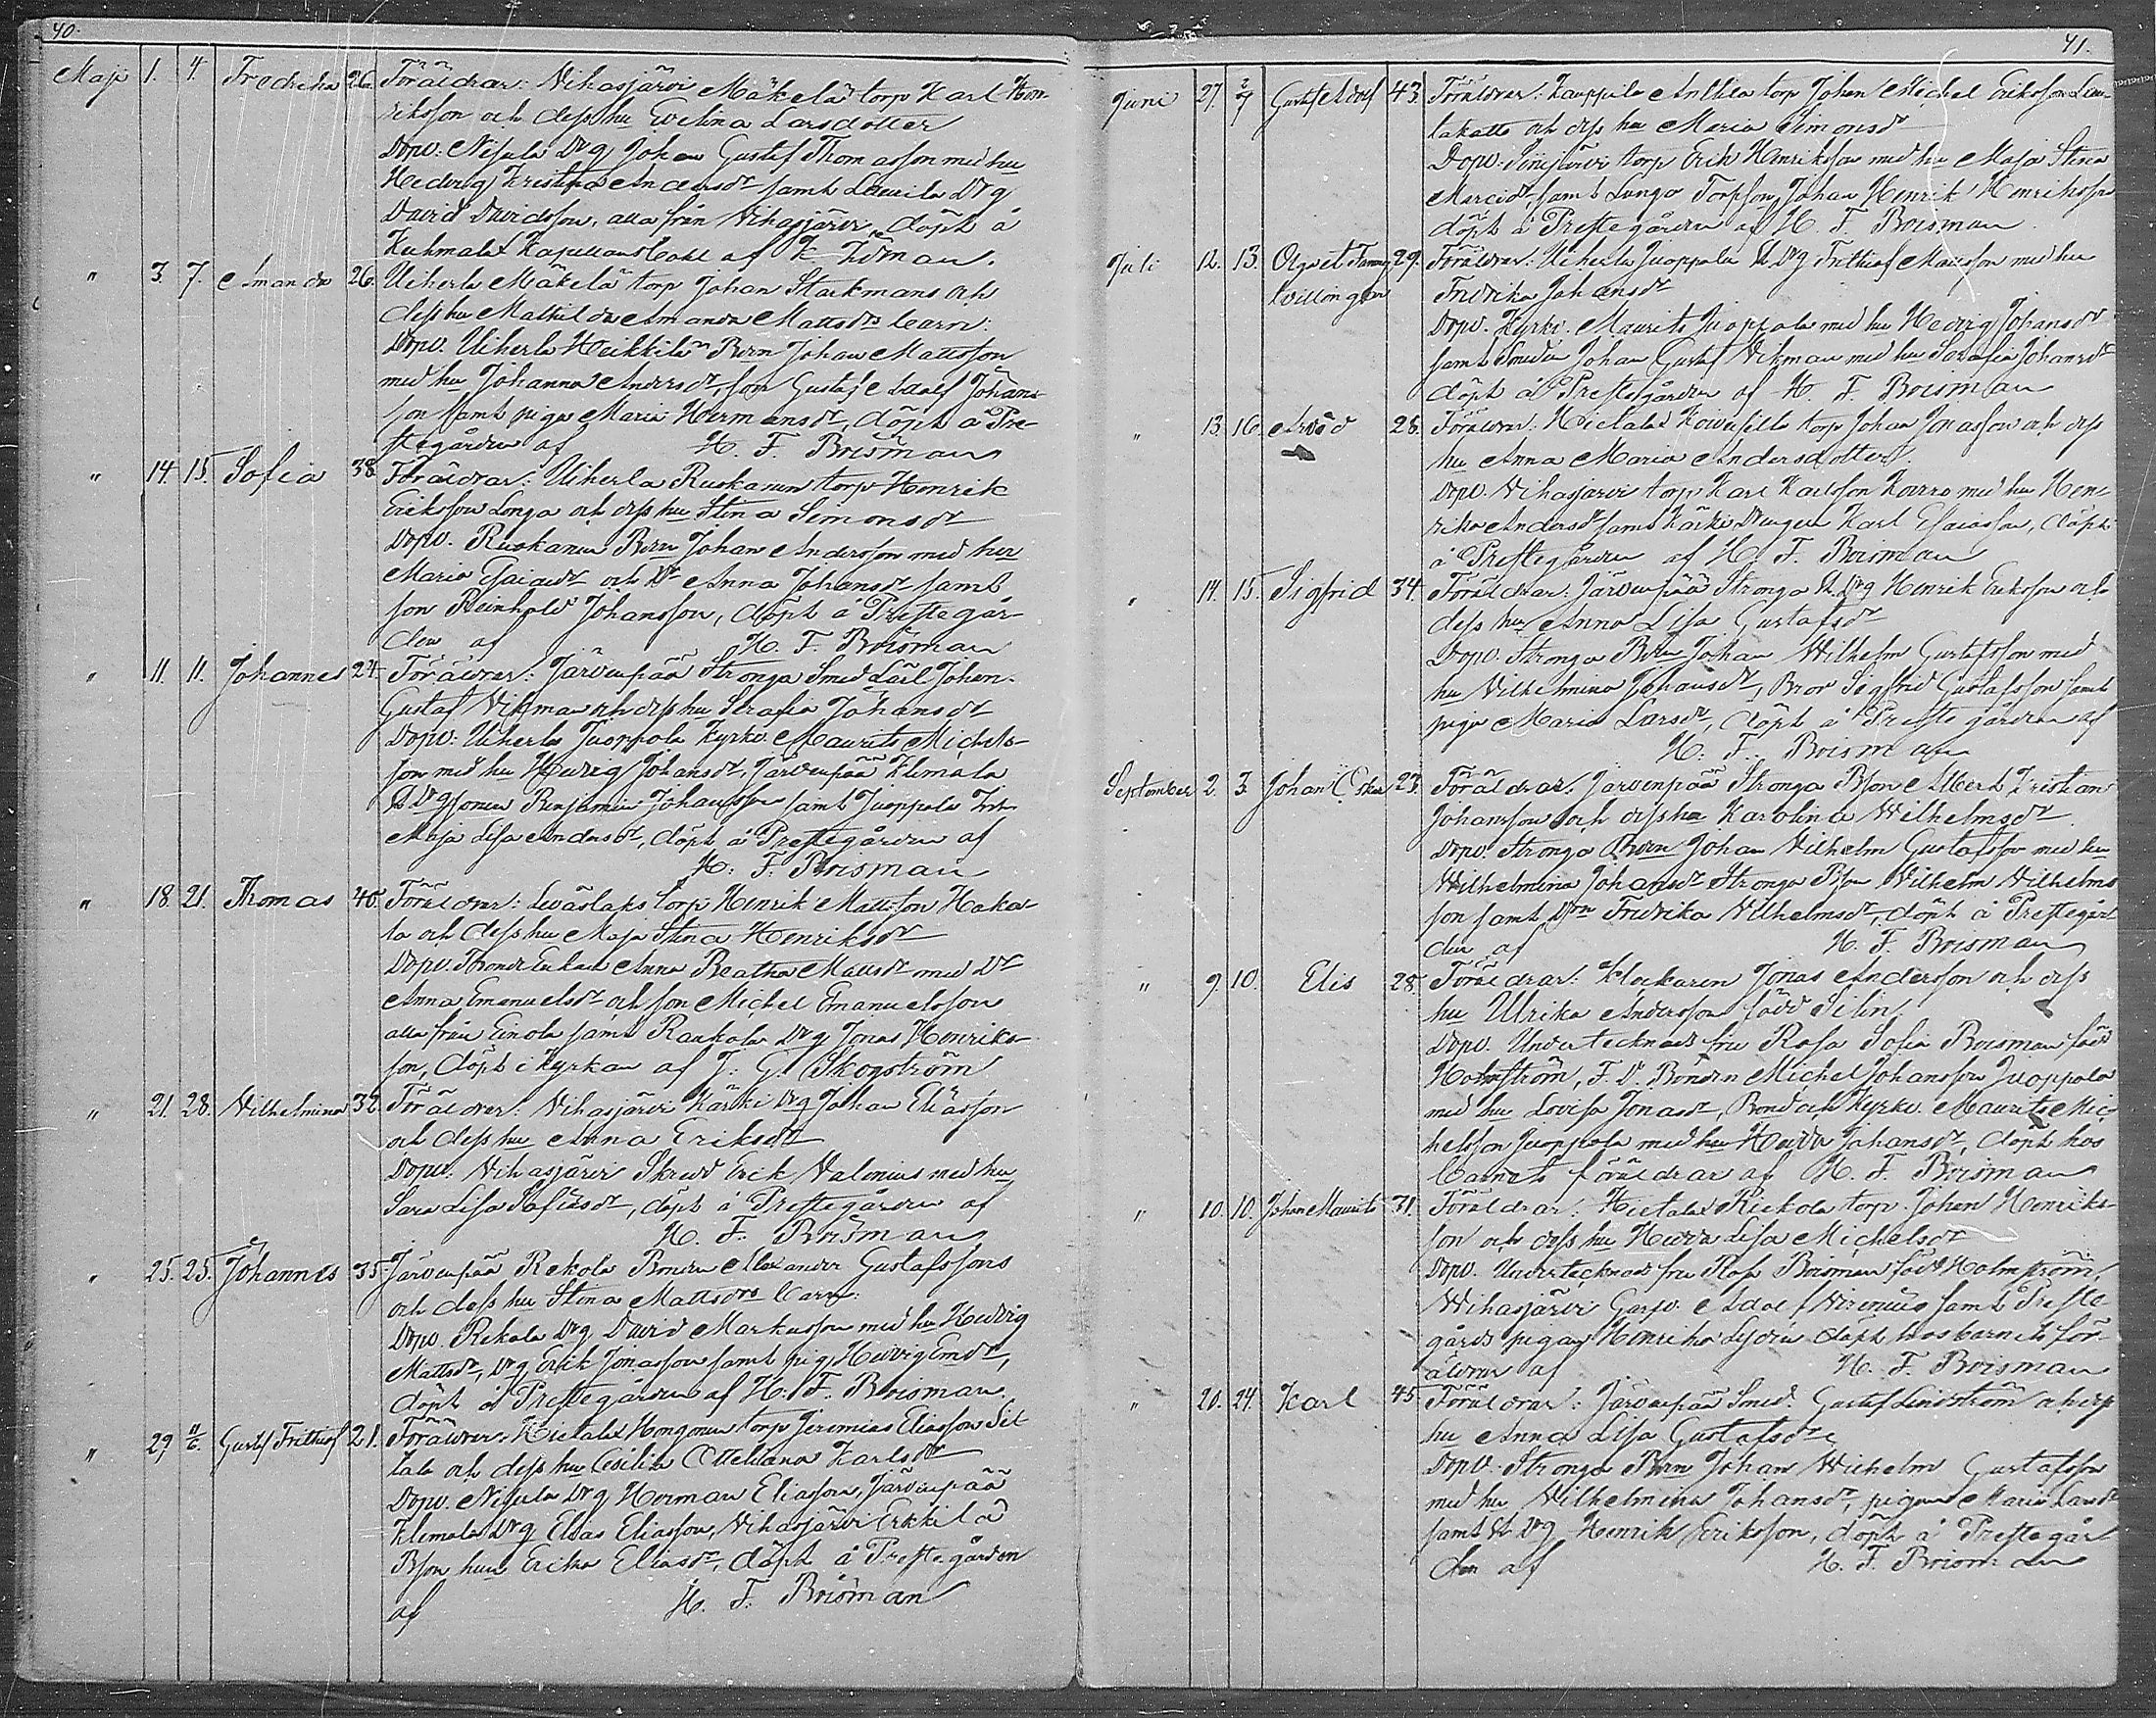 40.
Maji 1. 4. Fredrika 26. Föräldrar: Vihasjärvi Mäkelä torp Karl Hen-
riksson och dess hu Evelina Larsdotter
Dopv: Nisula Drg Johan Gustaf Thomasson med hu
Hedvig Kristina Andersdr samt Drg
David Davidsson, alla från Vihasjärvi, döpt å
Kuhmalax Kapellansbohl af K.
" 3. 7. Amanda 26. Uiherla Mäkelä torp Johan Starkmans och
dess hu Mathilda Amanda Mattsdrs barn:
Dopv. Uiherla Heikkilä Bdn Johan Mattsson
med hu Johanna Andersdr, son Gustaf Adolf Johans-
son samt piga Maria Hermansdr, döpt å Pre-
stegården af H. F. Boisman
" 14. 15. Sofia 38. Föräldrar: Uiherla Ruokanen torp Henrik
Eriksson Longa och dess hu Stina Simonsdr
Dopv. Ruokanen Bdn Johan Andersson med hu
Maria Esaiasdr och Dr Anna Johansdr samt
son Reinhold Johansson, döpt å Prestegår-
den af H. F. Boisman
" 11. 11. Johannes 24. Föräldrar: Järvenpää Stronga Smed Lärl Johan
Gustaf Vikman och dess hu Serafia Johansdr
Dopv: Uiherla Juoppola Kyrkv. Maurits Michels-
son med hu Hedvig Johansdr, Järvenpää Klemala
Benjamin Johansson samt Juoppola
Maja Lisa Andersdr, döpt å Prestegården af
H. F. Boisman
" 18. 21. Thomas 40. Föräldrar: Leväslaks torp Henrik Mattsson Haka-
la och dess hu Maja Stina Henriksdr
Dopv. Bonde Enkan Anna Beatha Mattsdr med Dr
Anna Emanuelsdr och son Michel Emanuelsson
alla från Einola samt Raukola Drg Jonas Henriks-
son, döpt i Kyrkan af J. G. Skogström
" 21. 28. Vilhelmina 32. Föräldrar: Vihasjärvi Kärki Drg Johan Eliasson
och dess hu Anna Eriksdr
Dopv: Vihasjärvi Skredd Erik Valenius med hu
Sara Lisa, döpt å Prestegården af
H. F. Boisman
" 25. 25. Johannes 35. Järvenpää Rekola Bonden Alexander Gustafssons
och dess hu Stina Mattsdrs barn:
Dopv. Rekola Drg David Markusson med hu Hedvig
Mattsdr, Drg Erik Jonasson samt pig Hedvig Emdr,
döpt å Prestegården af H. F. Boisman
" 29 11/6. Gustaf Frithiof 21. Föräldrar: Hietalax Hongonen torp Jeremias Eliasson Sil
tala och dess hu Cecilia Otteliana Karlsdr
Dopv. Nisula Drg Herman Eliasson, Järvenpää
Klemala Drg Elias Eliasson, Vihasjärvi Erkkilä
Bson hu Erika Eliasdr, döpt å Prestegården
af H. F. Boisman
41.
Juni 27. 2/7 Gustaf Adolf 43. Föräldrar: Kauppila Anttila torp Johan Michel Eriksson Lau-
lakatto och dess hu Maria Simonsdr
Dopv. torp Erik Henriksson med hu Maja Stina
samt Longa Torpson Johan Henrik Henriksson
döpt å Prestegården af H. F. Boisman
Juli 12. 13. Olga et Fanny 29. Föräldrar: Uiherla Juoppola Drg Frithiof Mausson med hu
tvillingar Fredrika Johansdr
Dopv. Kyrkv. Maurits Juoppola med hu Hedvig Johansdr
samt Smeden Johan Gustaf Vikman med hu Serafia Johansdr
döpt å Prestegården af H. F. Boisman
" 13. 16. Arvid 28. Föräldrar: Hietalax torp Johan Jonasson och dess
hu Anna Maria Andersdotter.
Dopv. Vihasjärvi torp Karl Karlsson Koivro med hu Hen-
rika Andersdr samt Kärki Drängen Karl Esaiasson, döpt
å Prestegården af H. F. Boisman
" 14. 15. Sigfrid 34. Föräldrar: Järvenpää Stronga Drg Henrik Eriksson och
dess hu Anna Lisa Gustafsdr
Dopv. Stronga Bdn Johan Wilhelm Gustafsson med
hu Vilhelmina Johansdr, Bror Sigfrid Gustafsson samt
piga Maria Larsdr, döpt å Prestegården af
H. F. Boisman
September 2. 3. Johan Oskar 23. Föräldrar: Järvenpää Stronga Bson Albert Kristian
Johansson och dess hu Karolina Wilhelmsdr
Dopv. Stronga Bdn Johan Vilhelm Gustafsson med hu
Wilhelmina Johansdr Stronga Bson Wilhelm Wilhelms
son samt Dtrn Fredrika Wilhelmsdr, döpt å Prestegår-
den af H. F. Boisman
" 9. 10. Elis 28. Föräldrar: Klockaren Jonas Andersson och dess
hu Ulrika Andersson född Silin.
Dopv. Undertecknads fru Rosa Sofia Boisman född
Holmström, F. D. Bonden Michel Johansson Juoppola
med hu Lovisa Jonasdr, Bond och Kyrkv. Maurits Mic-
helsson Juoppola med hu Hedda Johansdr, döpt hos
barnets föräldrar af H. F. Boisman
" 10. 10. Johan Maurits 31. Föräldrar: Hietalax Riekola torp. Johan Henriks-
son och dess hu Hedda Lisa Michelsdr
Dopv. Undertecknads fru Rosa Boisman född Holmström,
Wihasjärvi Garfv. Adolf Wirenius samt Preste-
gårds pigan Henrika Lydia döpt hos barnets för-
äldrar af H. F. Boisman
" 20. 24. Karl 45 Föräldrar: Järvenpää Smed. Gustaf Lindström och dess
hu Anna Lisa Gustafsdr
Dopv. Stronga Bdn Johan Wilhelm Gustafsson
med hu Vilhelmina Johansdr, pigan Maria Larsdr
samt Drg Henrik Eriksson, döpt å Prestegår-
den af H. F. Boisman